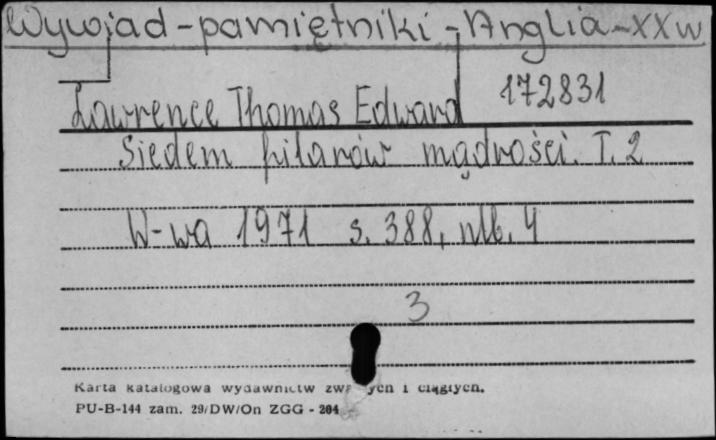 Wywiad - pamiętniki - Anglia - XX w
Lawrence Thomas Edward 172831
Siedem filarów mądrości. T. 2
W-wa 1971 s. 388, nlb. 4
3
Karta katalogowa wydawnictw i ciągłych.
PU-B-144 zam. 29/DW/On ZGG - 204